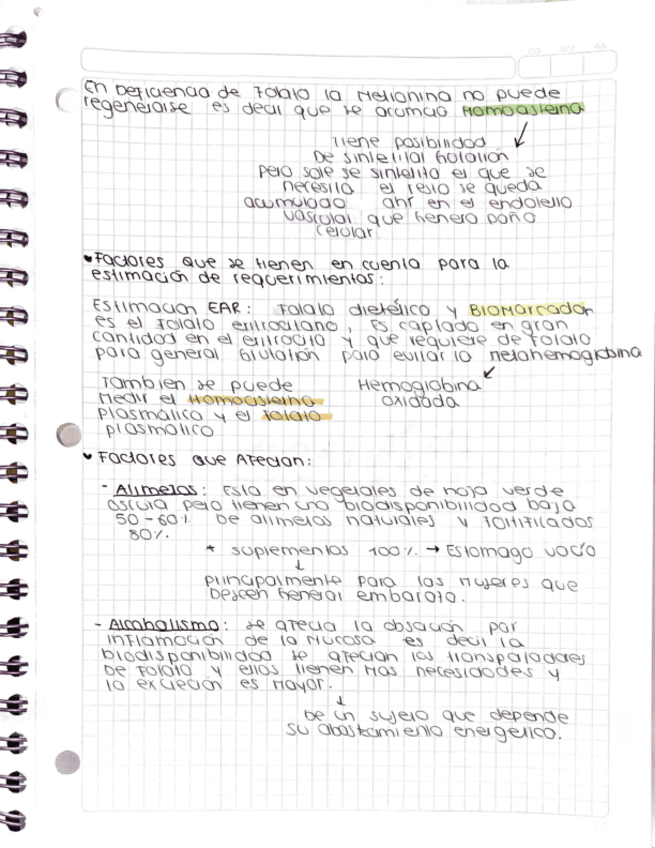 En Deficiencia de Folato la Metionina no puede
regenerarse es decir que se acumula Homocisteina
Tiene posibilidad
De sintetizar Glutation
Pero solo se sintetiza el que se
necesita el resto se queda
acumulado ahí en el endotelio
vascular que genera daño
celular
Factores que se tienen en cuenta para la
estimación de requerimientos:
Estimacion EAR: Folato dietético y Biomarcador
es el Folato eritrocitario, Es captado en gran
cantidad en el eritrocito y que requiere de folato
para generar glutation para evitar la metahemoglobina
Tambien se puede
Medir el Homocisteina
Plasmatico y el folato
plasmatico
Hemoglobina
oxidada
Factores que Afectan:
- Alimetos: Esta en vegetales de hoja verde
oscura pero tienen una biodisponibilidad baja
50-60% De alimetos naturales y fortificados
80%.
* suplementos 100%. → Estomago vacio
principalmente para las mujeres que
Deseen generar embarazo.
- Alcoholismo: se afecta la absocion por
inflamacion de la Mucosa es decir la
biodisponibilidad se afectan los transportadores
De Folato y ellos tienen mas necesidades y
la excrecion es mayor.
De un sujeto que depende
su abastamiento energetico.